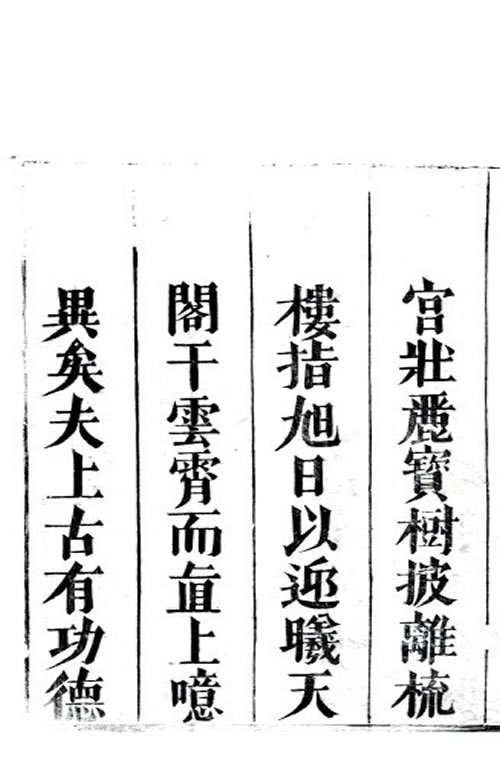 宫壯麗寶樹披離梳
樓指旭日以迎曦天
閣干雲霄而直上噫
異矣夫上古有功德